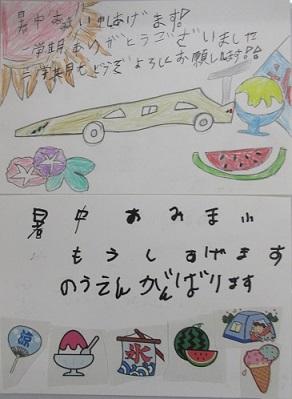 暑中お見まい申しあげます!
一学期ありがとうございました
二学期もどうぞよろしくお願いします!!
暑中おみまい
もうしあげます
のうえんがんばります
涼
氷